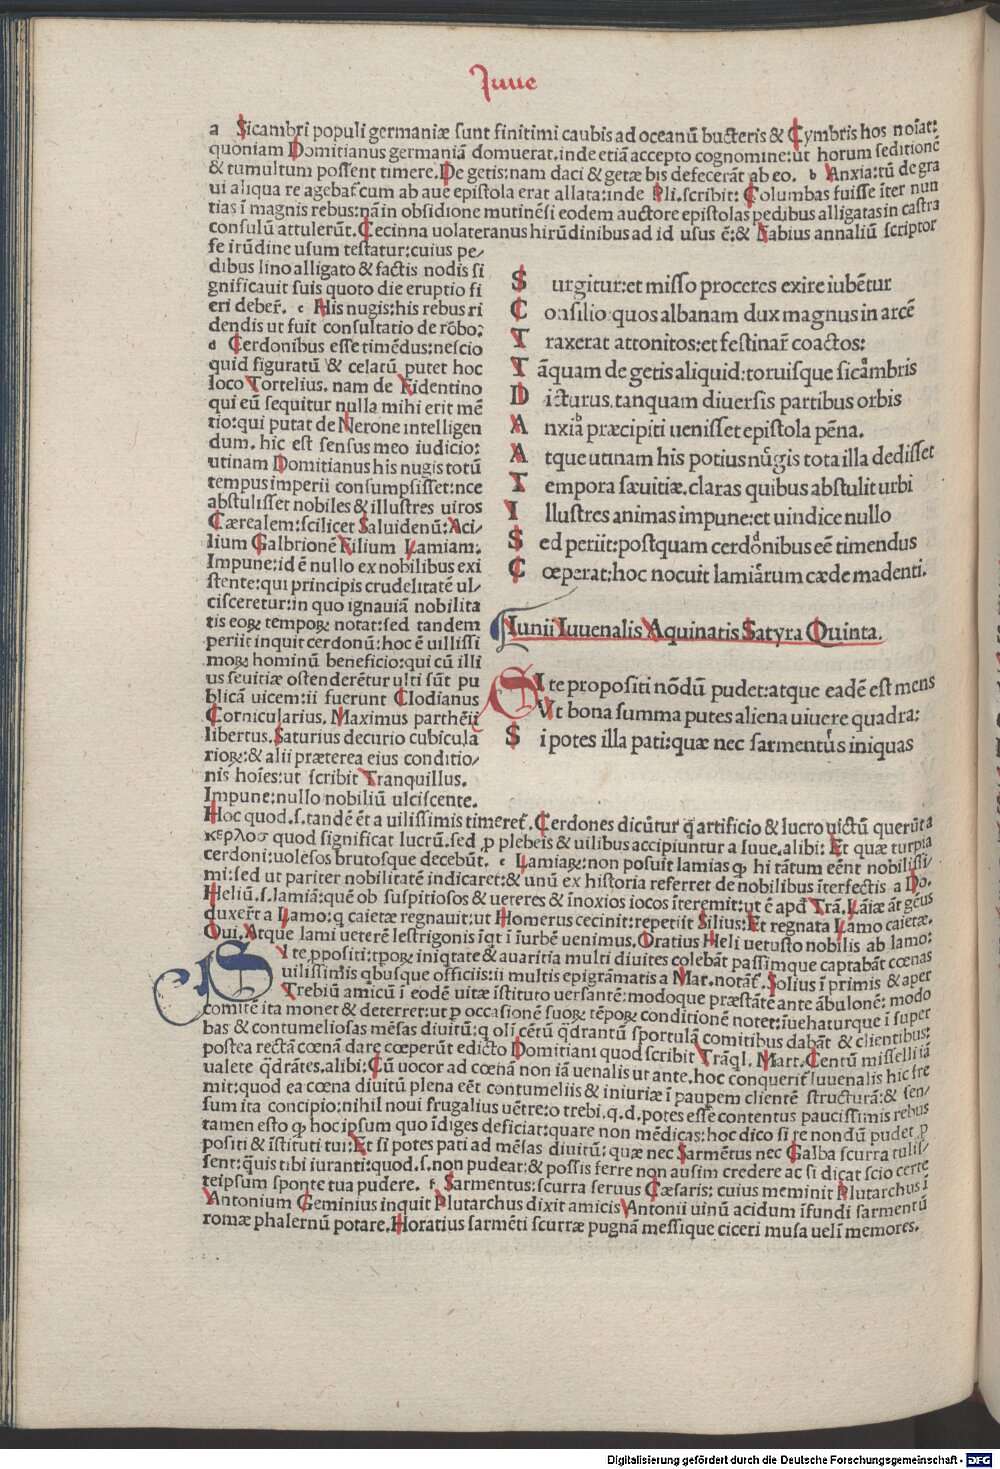 Iuue
a Sicambri populi germaniæ sunt finitimi caubis ad oceanū bucteris & Cymbris hos noiat:
quoniam Domitianus germaniā domuerat.inde etiā accepto cognomine:ut horum seditionē
& tumultum possent timere.De getis:nam daci & getæ bis defecerāt ab eo. b Anxia:tū de gra
ui aliqua re agebat̄ cum ab aue epistola erat allata:inde Pli.scribit: Columbas fuisse īter nun
tias ī magnis rebus:nā in obsidione mutinēsi eodem auctore epistolas pedibus alligatas in castra
consulū attulerūt.Cecinna uolateranus hirūdinibus ad id usus ē:& Fabius annaliū scriptor
se irūdine usum testatur:cuius pe/
dibus lino alligato & factis nodis si
gnificauit suis quoto die eruptio fi
eri deber̄. c His nugis:his rebus ri
dendis ut fuit consultatio de rōbo:
d Cerdonibus esse timēdus:nescio
quid figuratū & celatū putet hoc
loco Tortelius. nam de Fidentino
qui eū sequitur nulla mihi erit mē
tio:qui putat de Nerone intelligen
dum. hic est sensus meo iudicio:
utinam Domitianus his nugis totū
tempus imperii consumpsisset:nce
abstulisset nobiles & illustres uiros
Cærealem:scilicet Saluidenū:Aci/
lium Galbrionē Filium Lamiam.
Impune:id ē nullo ex nobilibus exi
stente:qui principis crudelitatē ul/
cisceretur:in quo ignauiā nobilita
tis eoꝝ tempoꝝ notat:sed tandem
periit inquit cerdonū:hoc ē uilissi
moꝝ hominū beneficio:qui cū illi
us seuitiæ ostenderētur ulti sūt pu
blicā uicem:ii fuerunt Clodianus
Cornicularius. Maximus parthēii
libertus.Saturius decurio cubicula
rioꝝ:& alii præterea eius conditio/
nis hoīes:ut scribit Tranquillus.
Impune:nullo nobiliū ulciscente.
S urgitur:et misso proceres exire iubētur
C onsilio:quos albanam dux magnus in arcē
T raxerat attonitos:et festinar̄ coactos:
T āquam de getis aliquid:toruisque sicābris
D icturus.tanquam diuersis partibus orbis
A nxia præcipiti uenisset epistola pēna.
A tque utinam his potius nugis tota illa dedisset
T empora sæuitiæ.claras quibus abstulit urbi
I llustres animas impune:et uindice nullo
S ed periit:postquam cerdonibus eē timendus
C œperat:hoc nocuit lamiarum cæde madenti.
Iunii Iuuenalis Aquinatis Satyra Quinta.
SI te propositi nōdū pudet:atque eadē est mens
Vt bona summa putes aliena uiuere quadra:
S i potes illa pati:quæ nec sarmentus iniquas
Hoc quod.s.tandē ēt a uilissimis timeret̄.Cerdones dicūtur q̄ artificio & lucro uictū querūt a
κερλοσ quod significat lucrū.sed ꝓ plebeis & uilibus accipiuntur a Iuue.alibi: Et quæ turpia
cerdoni:uolesos brutosque decebūt. e Lamiaꝝ:non posuit lamias qꝫ hi tātum eēnt nobilissi/
mi:sed ut pariter nobilitatē indicaret:& unū ex historia referret de nobilibus īterfectis a Do.
Heliū.s.lamiā:quē ob suspitiosos & ueteres & īnoxios iocos īteremit:ut ē apđ Trā.Laīæ āt gēus
duxer̄t a Lamo:q caietæ regnauit:ut Homerus cecinit:repetiit Silius:Et regnata Lamo caietæ.
Oui.Atque lami ueterē lestrigonis īqt ī īurbē uenimus.Oratius Heli uetusto nobilis ab lamo:
SI te ꝓpositi:tꝑoꝝ iniqtate & auaritia multi diuites colebāt passimque captabāt cœnas
uilissimis qbusque officiis:ii multis epigrāmatis a Mar.notāt̄.Solius ī primis & aper
Trebiū amicū ī eodē uitæ īstituto uersantē:modoque præstātē ante ābulonē: modo
comitē ita monet & deterret:ut ꝑ occasionē suoꝝ tēpoꝝ conditionē notet:īuehaturque ī super
bas & contumeliosas mēsas diuitū:q oli cētū q̄drantū sportulā comitibus dabāt & clientibus:
postea rectā cœnā dare cœperūt edicto Domitiani quod scribit Trāql. Mart.Centū miselli iā
ualete q̄drātes.alibi:Cū uocor ad cœnā non iā uenalis ut ante.hoc conquerit̄ Iuuenalis hic fre
mit:quod ea cœna diuitū plena eēt contumeliis & iniuriæ ī paupem clientē structurā:& sen/
sum ita concipio:nihil noui frugalius uētre:o trebi.q.d.potes esse contentus paucissimis rebus
tamen esto qꝫ hoc ipsum quo īdiges deficiat:quare non mēdicas:hoc dico si te nondū pudet ꝓ
positi & īstituti tui:Et si potes pati ad mēsas diuitū: quæ nec Sarmētus nec Galba scurra tulis/
sent:q̄uis tibi iuranti:quod.s.non pudeat:& possis ferre non ausim credere ac si dicat scio certe
teipsum sponte tua pudere. f Sarmentus:scurra seruus Cæsaris: cuius meminit Plutarchus ī
Antonium Geminius inquit Plutarchus dixit amicis Antonii uinū acidum īfundi sarmentū
romæ phalernū potare.Horatius sarmēti scurræ pugnā messique ciceri musa uelī memores.
Digitalisierung gefördert durch die Deutsche Forschungsgemeinschaft - DFG